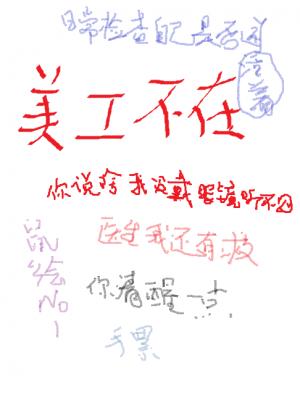 日常检查自己是否还
活着
美工不在
你说啥我没戴眼镜听不见
医生我还有救
鼠绘NO1
你清醒一点
手累